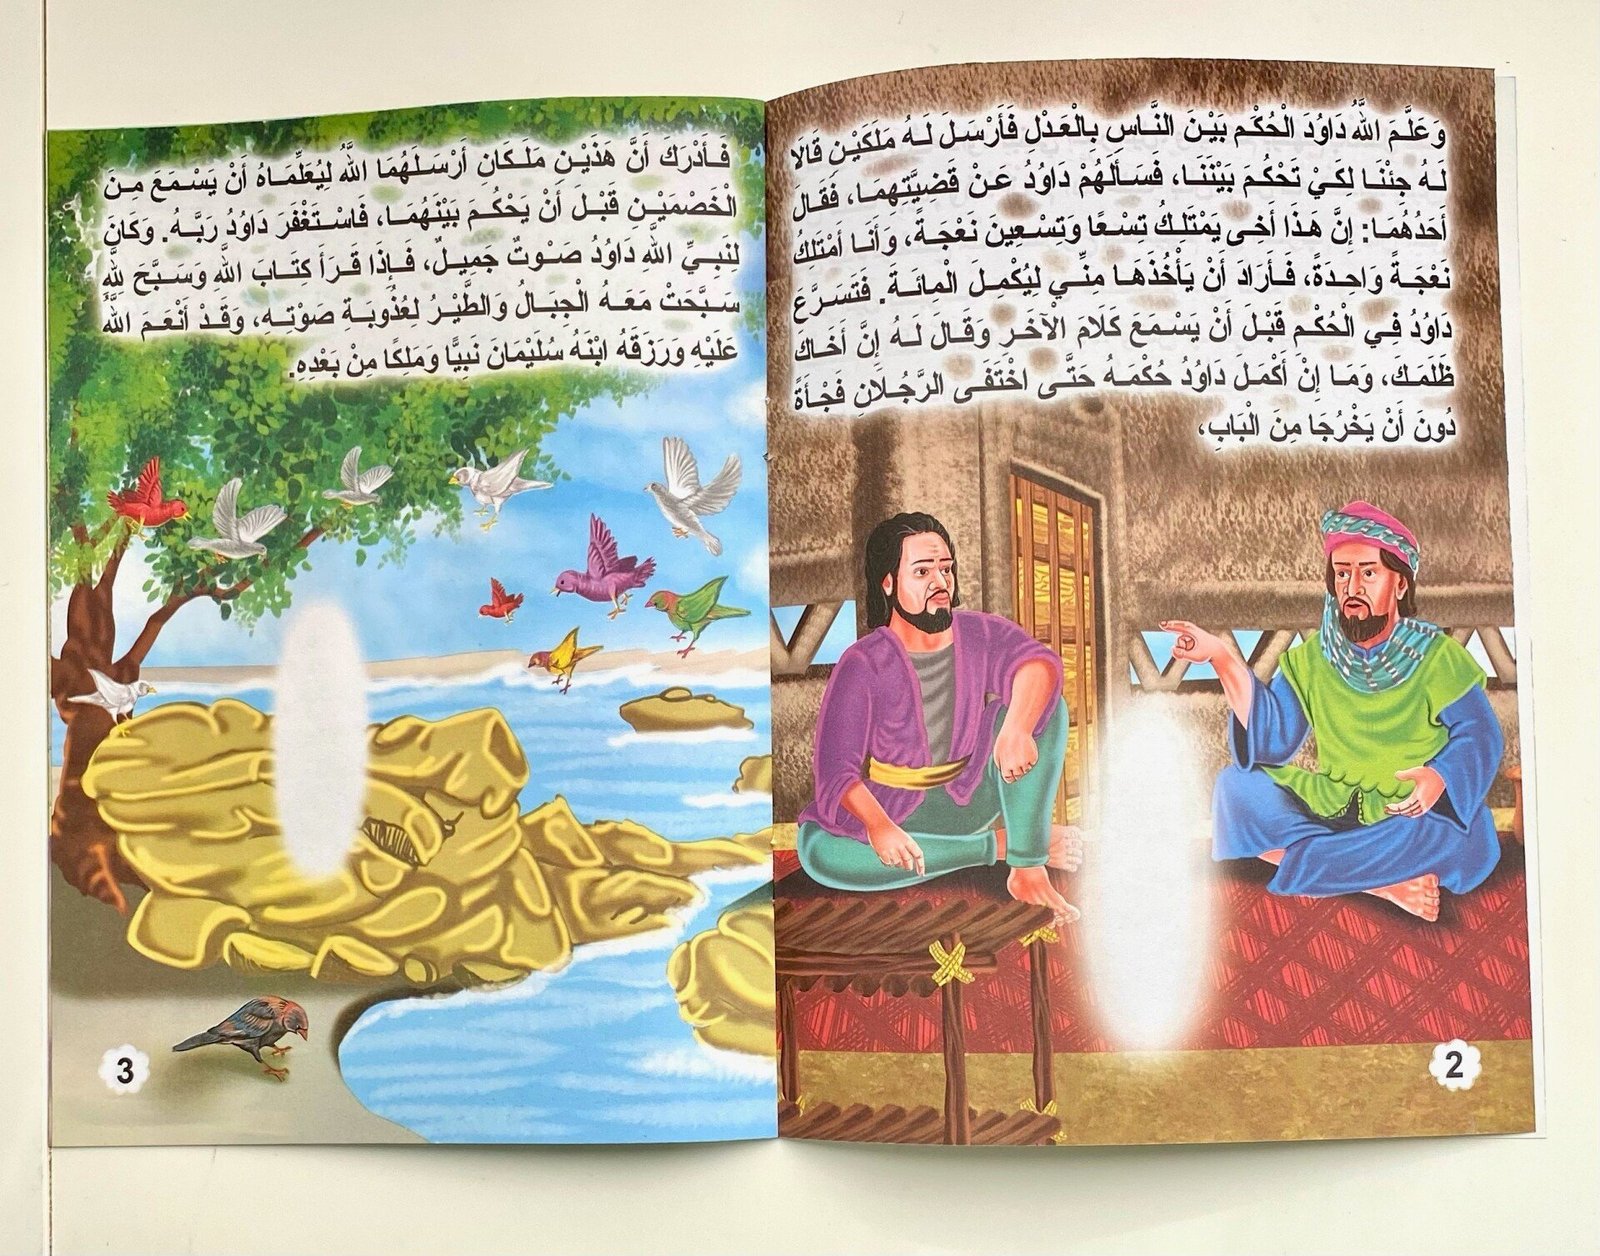 وَعَلَّمَ اللَّهُ دَاوُدَ الْحُكْمَ بَيْنَ النَّاسِ بِالْعَدْلِ فَأَرْسَلَ لَهُ مَلَكَيْنِ قَالَا
لَهُ جِئْنَا لِكَيْ تَحْكُمَ بَيْنَنَا، فَسَأَلَهُمْ دَاوُدُ عَنْ قَضِيَّتِهِمَا، فَقَالَ
أَحَدُهُمَا: إِنَّ هَذَا أَخِى يَمْتَلِكُ تِسْعًا وَتِسْعِينَ نَعْجَةً، وَأَنَا أَمْتَلِكُ
نَعْجَةً وَاحِدَةً، فَأَرَادَ أَنْ يَأْخُذَهَا مِنِّي لِيُكْمِلَ الْمِائَةَ. فَتَسَرَّعَ
دَاوُدُ فِي الْحُكْمِ قَبْلَ أَنْ يَسْمَعَ كَلَامَ الْآخَرِ وَقَالَ لَهُ إِنَّ أَخَاكَ
ظَلَمَكَ، وَمَا إِنْ أَكْمَلَ دَاوُدُ حُكْمَهُ حَتَّى اخْتَفَى الرَّجُلَانِ فَجْأَةً
دُونَ أَنْ يَخْرُجَا مِنَ الْبَابِ،
2
فَأَدْرَكَ أَنَّ هَذَيْنِ مَلَكَانِ أَرْسَلَهُمَا اللَّهُ لِيُعَلِّمَاهُ أَنْ يَسْمَعَ مِنَ
الْخَصْمَيْنِ قَبْلَ أَنْ يَحْكُمَ بَيْنَهُمَا، فَاسْتَغْفَرَ دَاوُدُ رَبَّهُ. وَكَانَ
لِنَبِيِّ اللَّهِ دَاوُدَ صَوْتٌ جَمِيلٌ، فَإِذَا قَرَأَ كِتَابَ اللَّهِ وَسَبَّحَ لِلَّهِ
سَبَّحَتْ مَعَهُ الْجِبَالُ وَالطَّيْرُ لِعُذُوبَةِ صَوْتِهِ، وَقَدْ أَنْعَمَ اللَّهُ
عَلَيْهِ وَرَزَقَهُ ابْنَهُ سُلَيْمَانَ نَبِيًّا وَمَلِكًا مِنْ بَعْدِهِ.
3